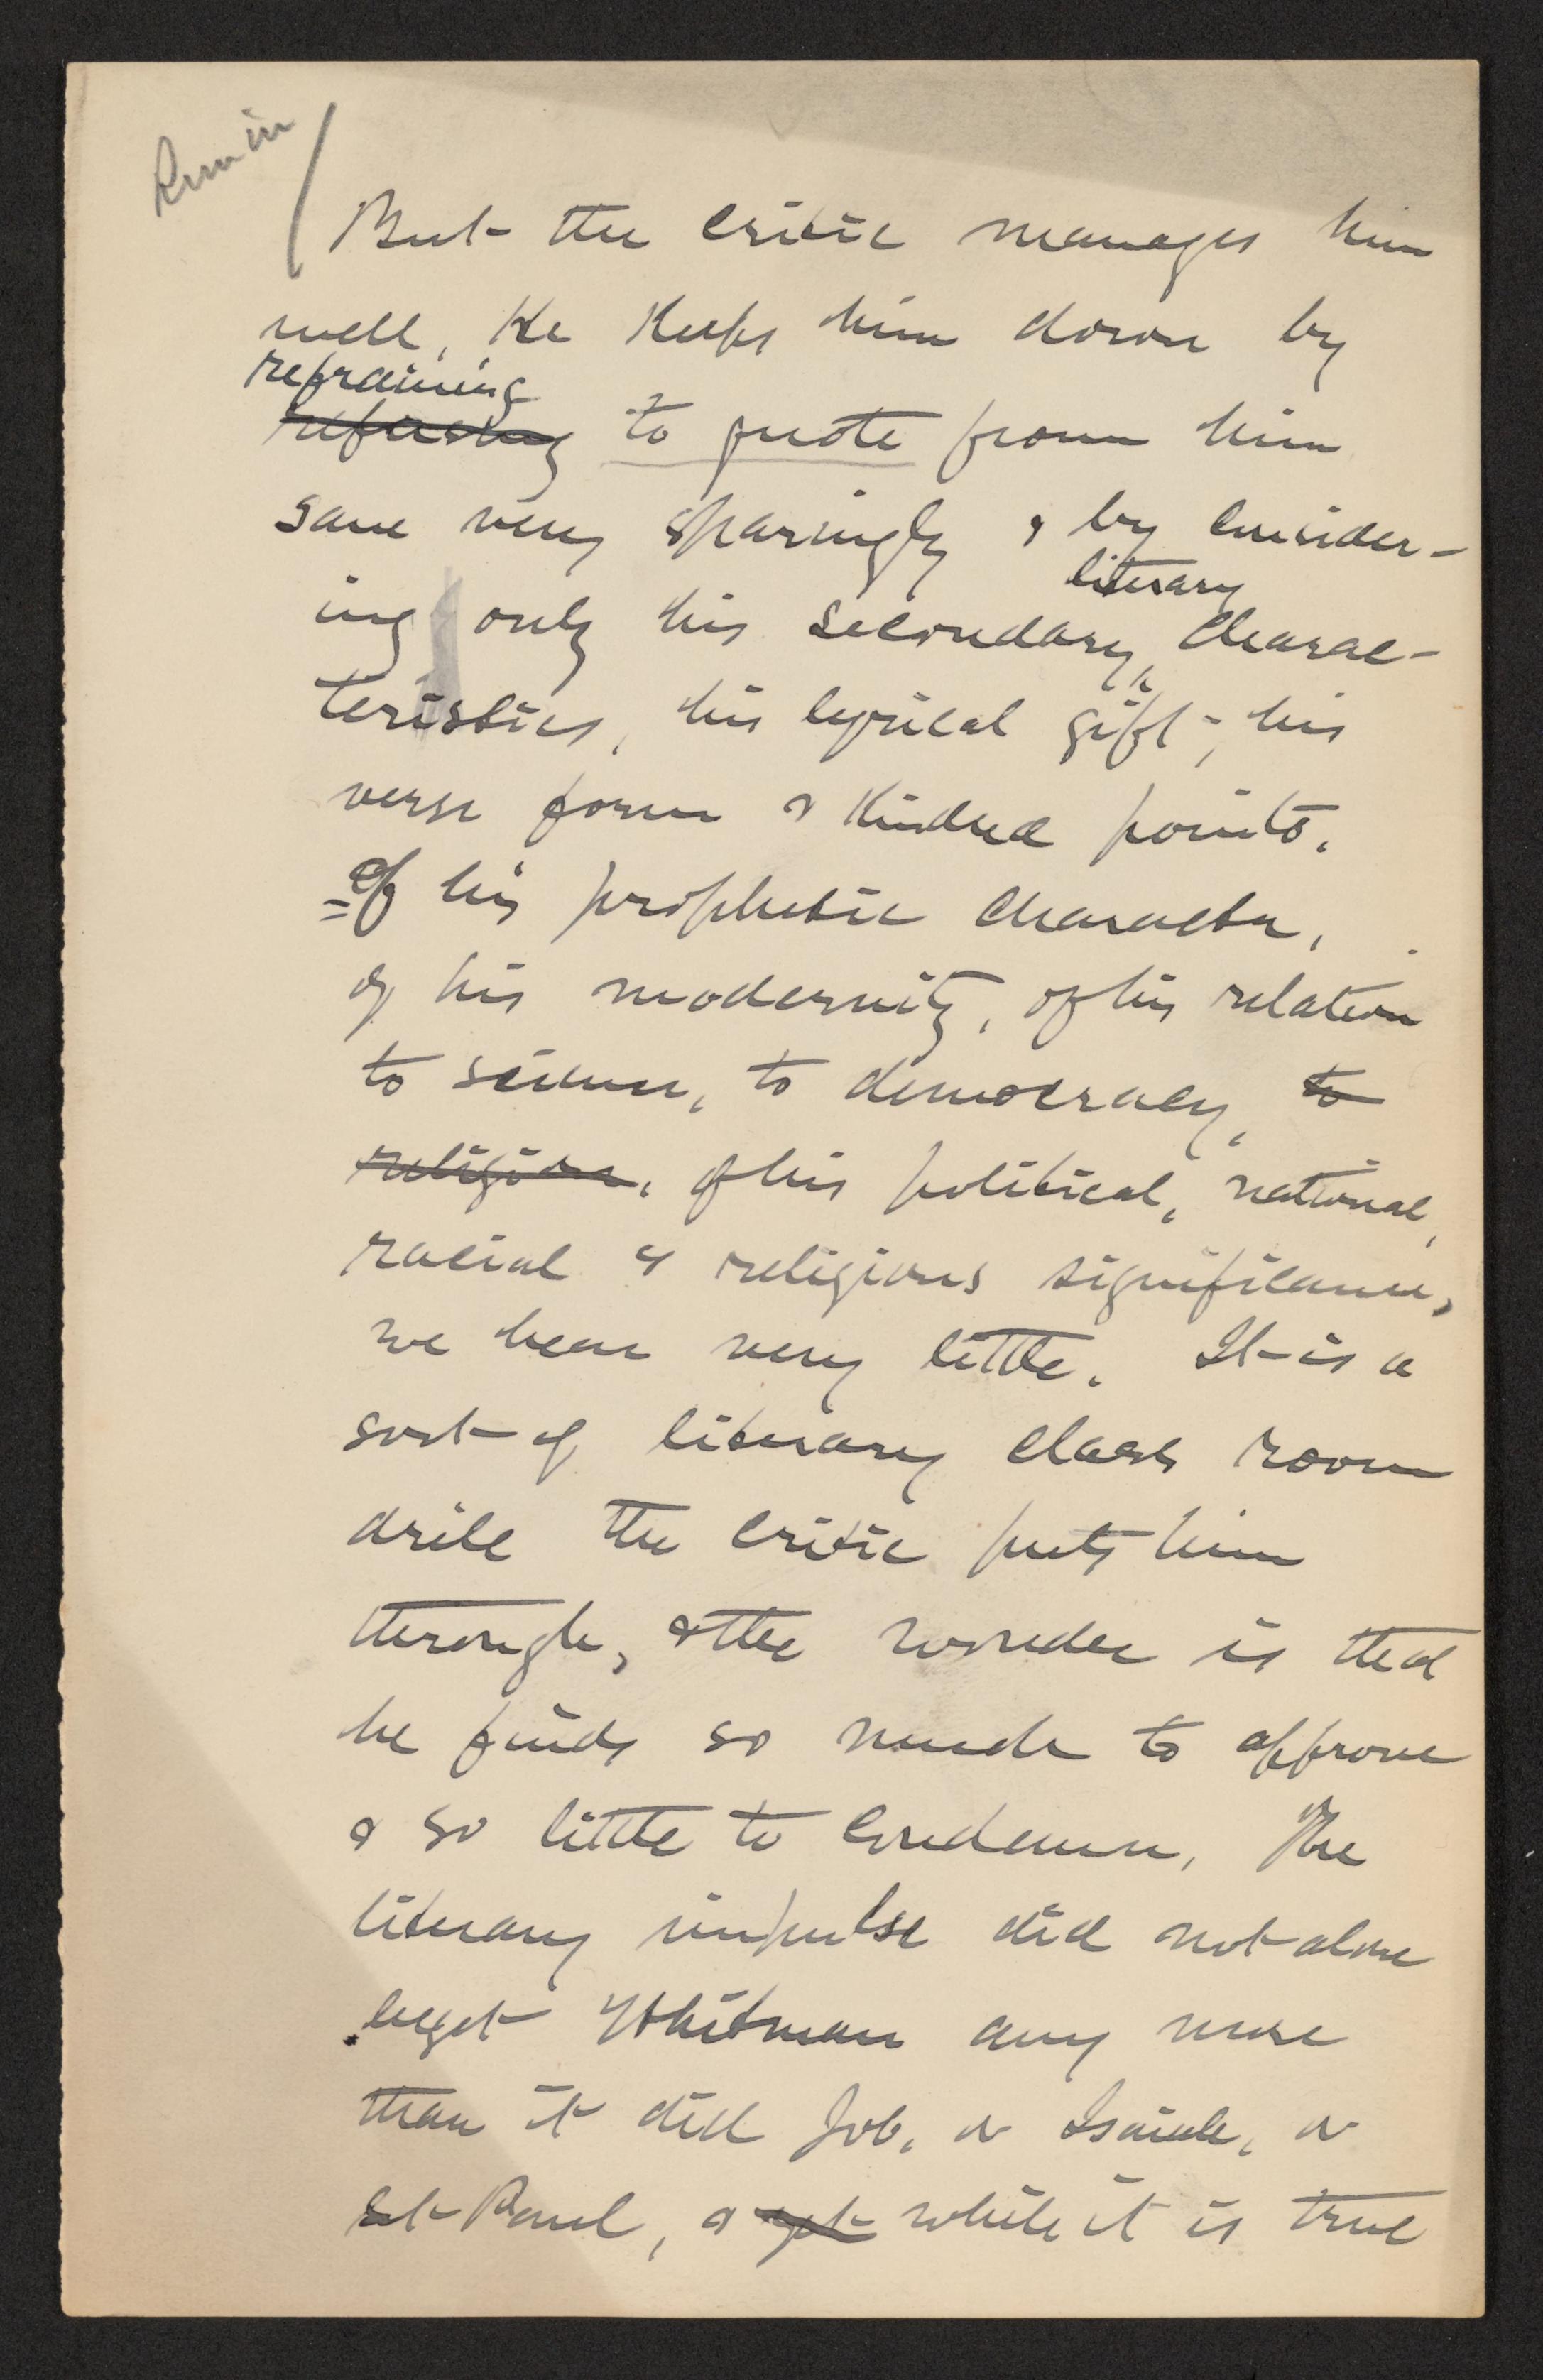 Run in
But the critic manages him
well, He Keeps him down by
refraining
refusing to quote from him
save very sparingly & by consider-
literary
ing only his secondary charac-
teristics, his lyrical gift, his
verse form & Kindred points.
Of his prophetic character,
of his modernity, of his relation
to science, to democracy, to
religion, of his political, national,
racial & religious significance,
we hear very little. It is a
sort of literary class room
drill the critic puts him
through, & the wonder is that
he finds so much to approve
& so little to condemn. The
literary impulse did not alone
beget Whitman any more
than it did Job, or Isaiah, or
St Paul, & yet while it is true